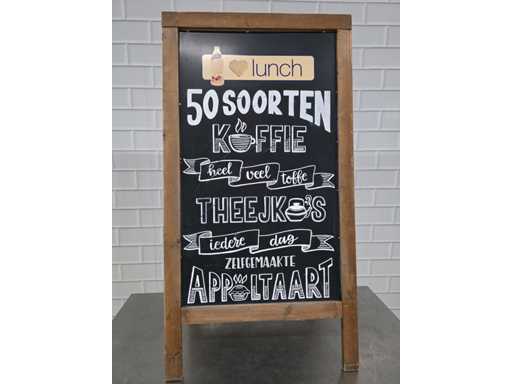 lunch
50 SOORTEN
KOFFIE
heel veel toffe
THEEJKO'S
iedere dag
ZELFGEMAAKTE
APPELTAART